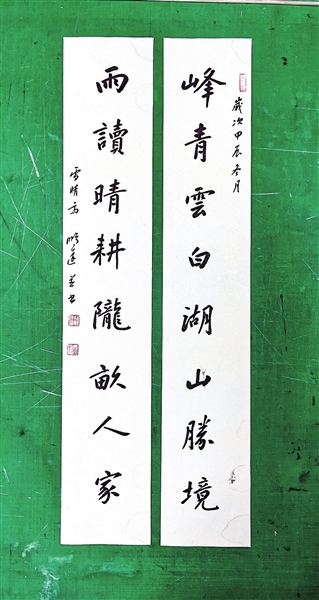 歲次甲辰冬月
峰青雲白湖山勝境
雨讀晴耕隴畝人家
雪晴齋 順達 並書